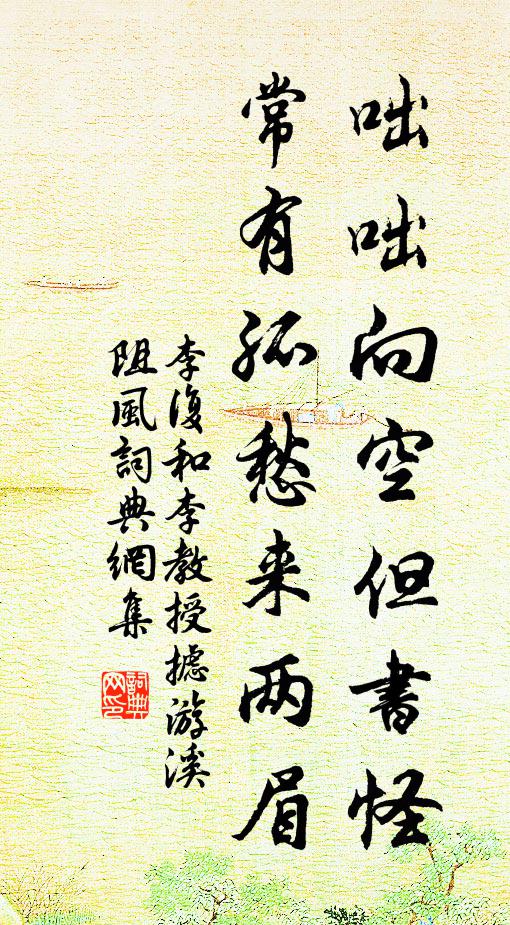 咄咄向空但書怪
常有孤愁来两眉
李復和李教授摅游溪
阻風詞典網集
詞典網印